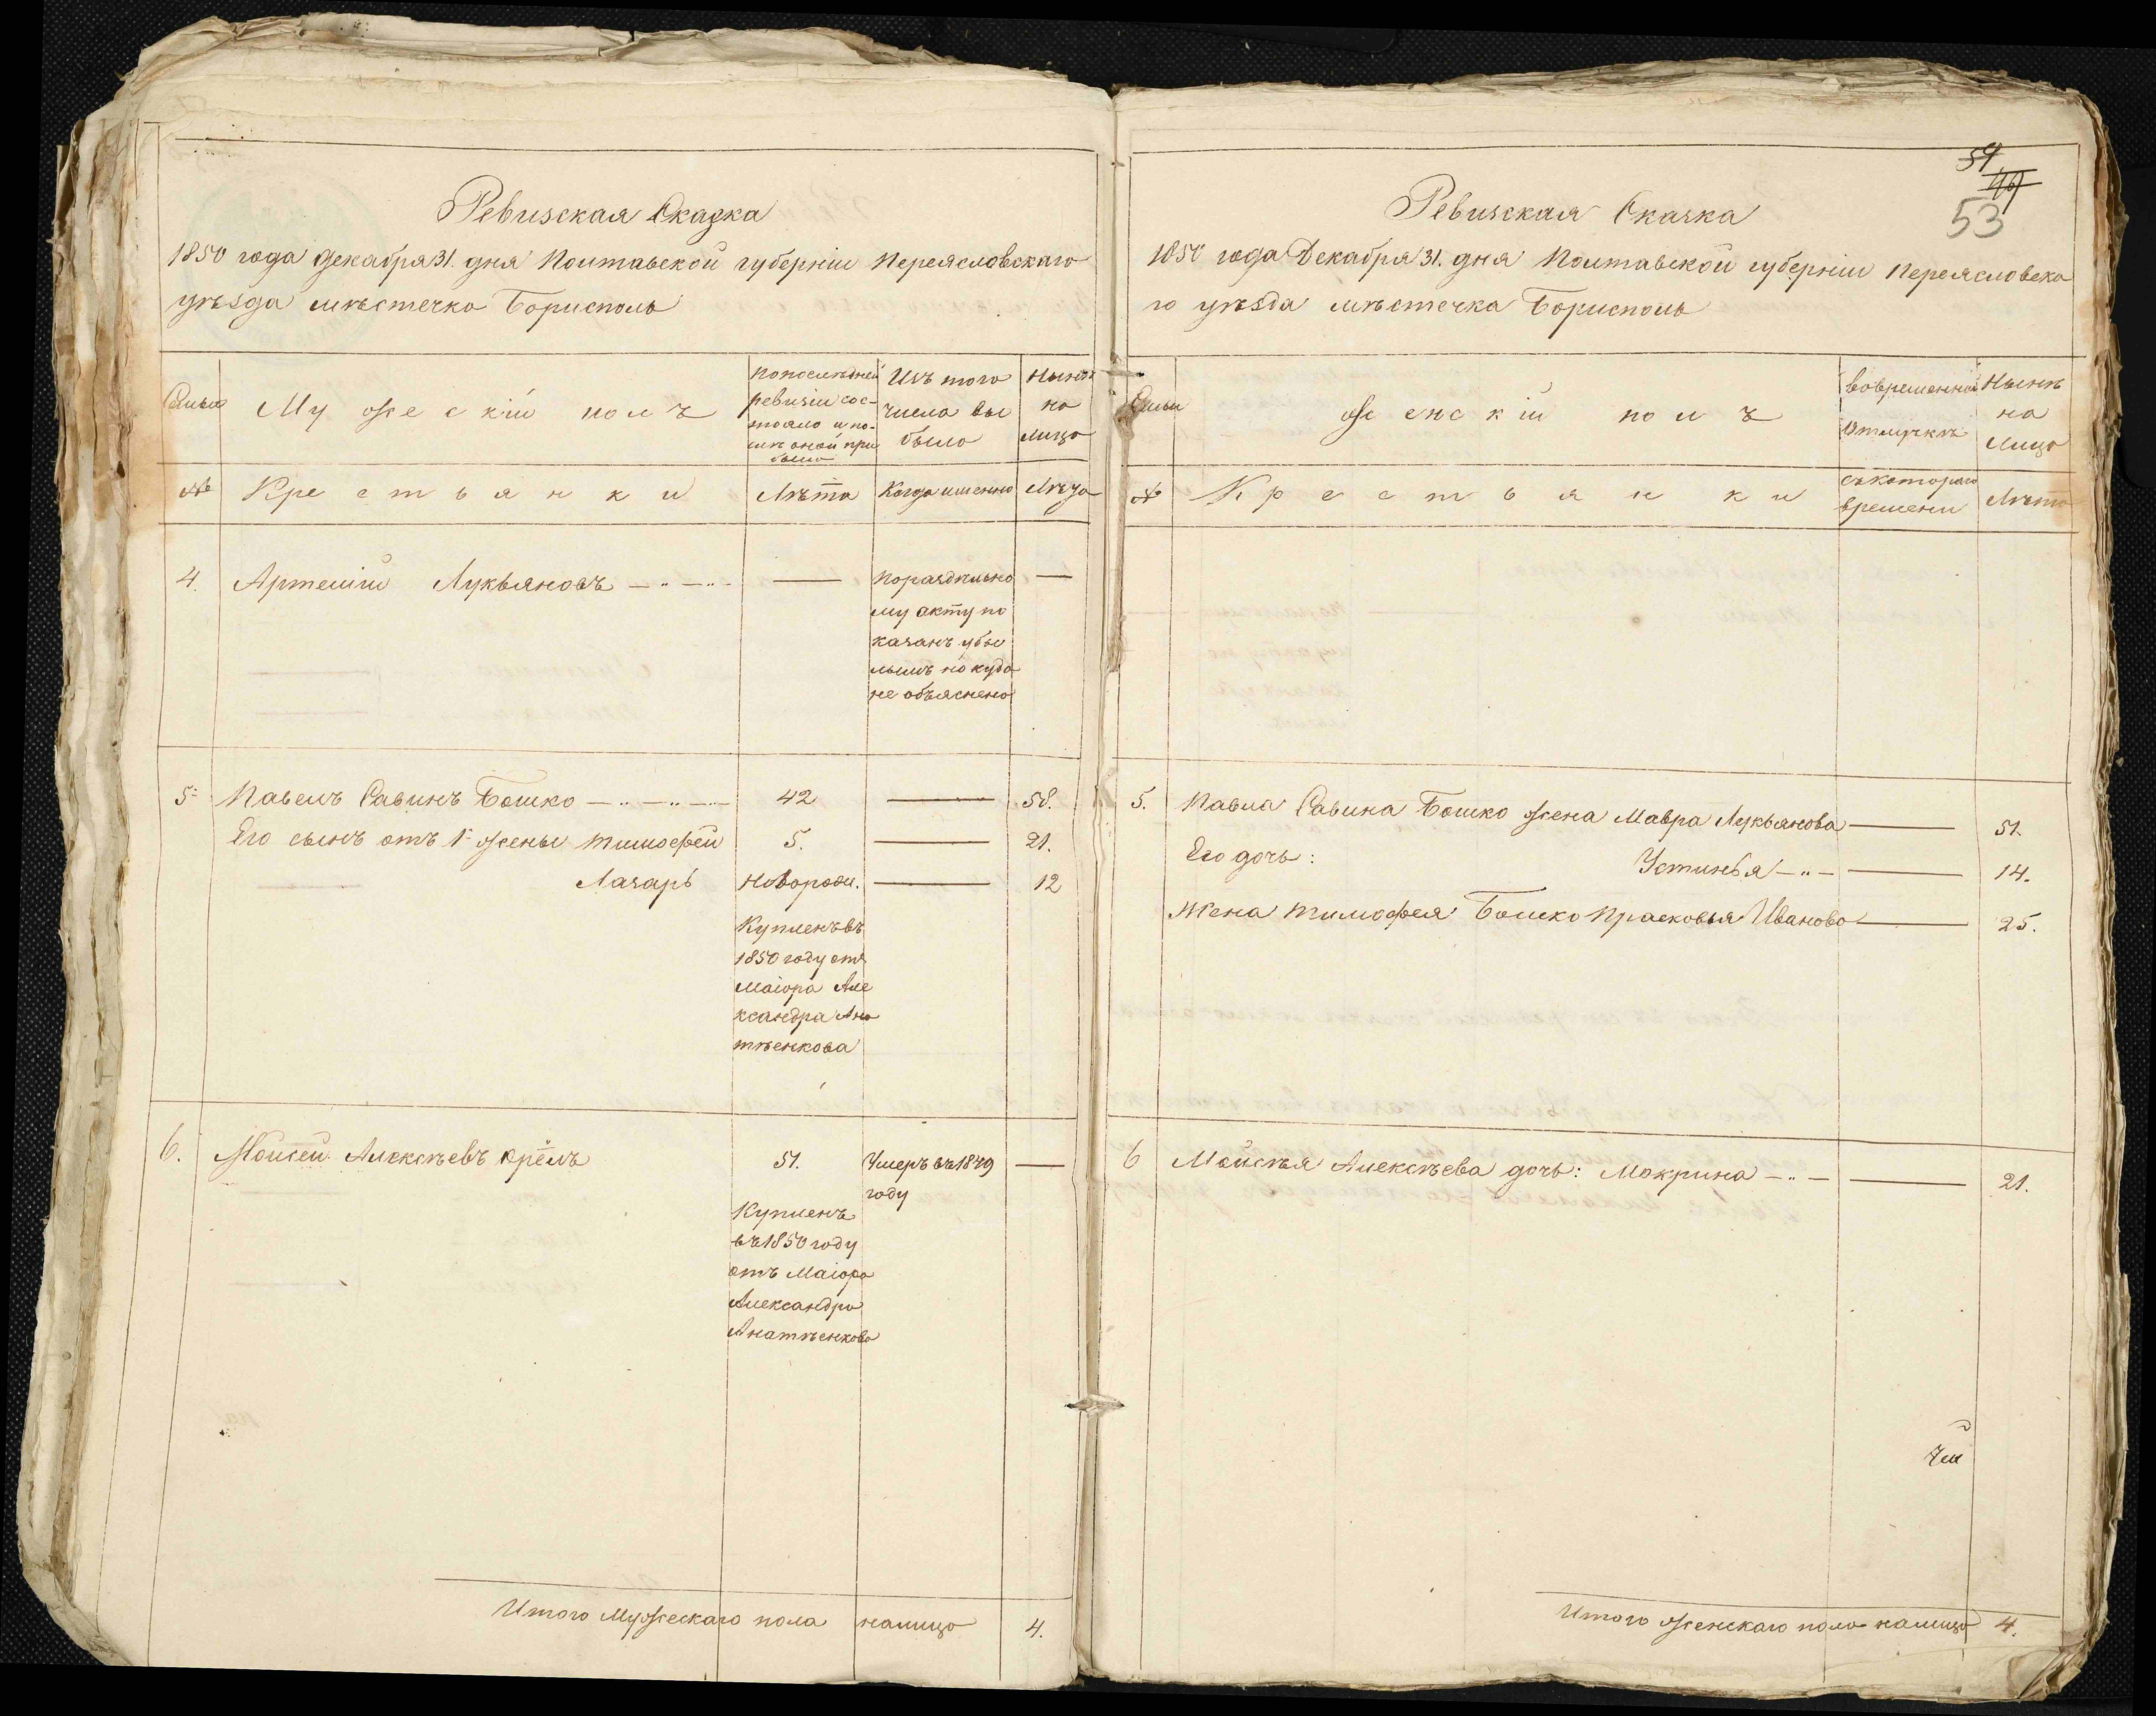 Ревизская Сказка
1850 года декабря 31. дня Полтавской губерніи Переясловскаго
уѣзда мѣстечка Борисполь
Семьи
Мужескій полъ
По последней
ревизіи сос-
тояло и по-
слѣ оной при
было
Изъ того
числа вы
было
Нынѣ
на
лицо
№
Крестьянки
Лѣта
Когда именно
Лѣта
4.
Артемій Лукьяновъ
По раздѣльно
му акту по
казанъ убы
лымъ но куда
не объяснено
5. Павелъ Савинъ Бошко 42 58.
Его сынъ отъ 1й жены Тимофей 5. 21.
Лазарь Новорожд. 12
Купленъ въ
1850 году отъ
Маіора Але
ксандра Ана
тѣенкова
6. Моисей Алексѣевъ Орёлъ 51. Умеръ въ 1849
году
Купленъ
въ 1850 году
отъ Маіора
Александра
Анатѣенкова
Итого Мужескаго пола налицо 4.
54
49
53
Ревизская Сказка
1850 года Декабря 31. дня Полтавской губерніи Переясловска
го уѣзда мѣстечка Борисполь
Семьи
Женскій полъ
Во временной
отлучкѣ
Нынѣ
на
лицо
№
Крестьянки
Съ котораго
времени
Лѣта
5. Павла Савина Бошко жена Мавра Лукьянова 51.
Его дочь: Устинья 14.
Жена Тимофея Бошко Прасковья Иванова 25.
6 Моисѣя Алексѣева дочь: Мокрина 21.
Итого женскаго пола налицо 4.